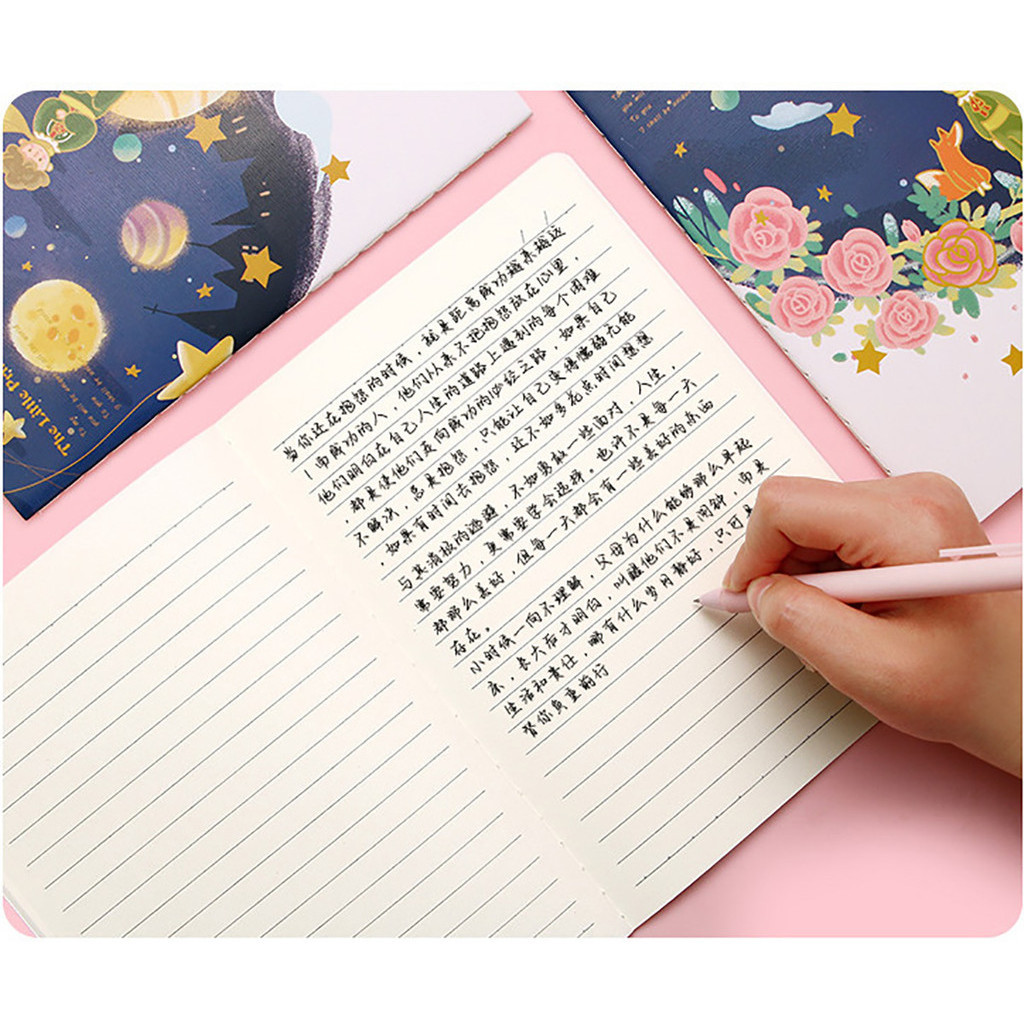 The Little Pr
To yo
You will
To you
I shall be
To you
I shall be under
当你还在抱怨的时候，就是距离成功越来越远
！而成功的人，他们从来不把抱怨放在心里，
他们明白在自己人生的道路上遇到的每个困难
，都是使他们走向成功的必经之路，如果自己
不解决，总是抱怨，只能让自己变得懦弱无能
，如果有时间去抱怨，还不如多花点时间想想
与其消极的逃避，不如勇敢一些面对，人生，
需要努力，更需要学会选择。也许不是每一天
都那么美好，但每一天都会有一些美好的东西
存在。
小时候一向不理解，父母为什么能够那么早起
床，长大后才明白，叫醒他们不是闹钟，而是
生活和责任，哪有什么岁月静好，只可是
替你负重前行